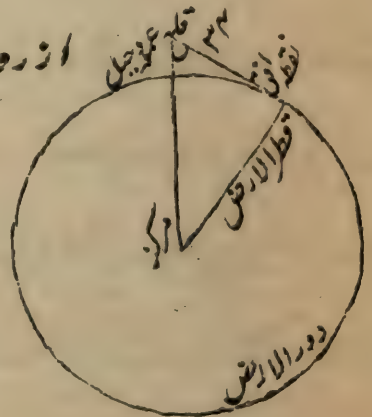 از رو
قلہ عمود جبل
۳۳
نقطہ افق
قطر الارض
مرکز
دور الارض